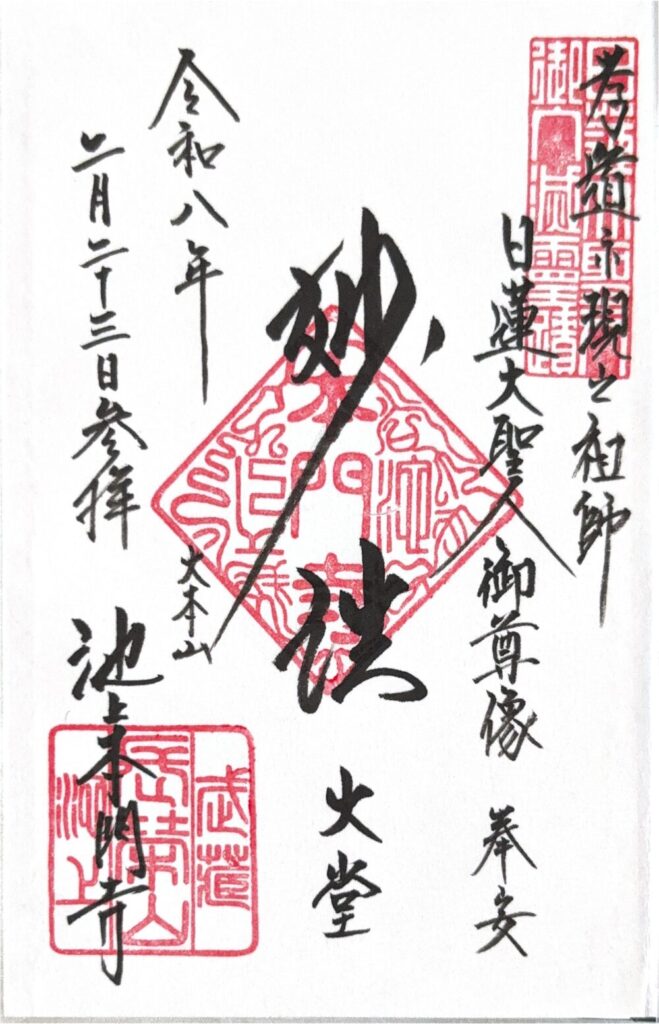 孝道示現之祖師
日蓮大聖人御尊像 奉安
妙法
大堂
大本山
池上本門寺
令和八年
二月二十三日参拝
武蔵
長栄山
池上